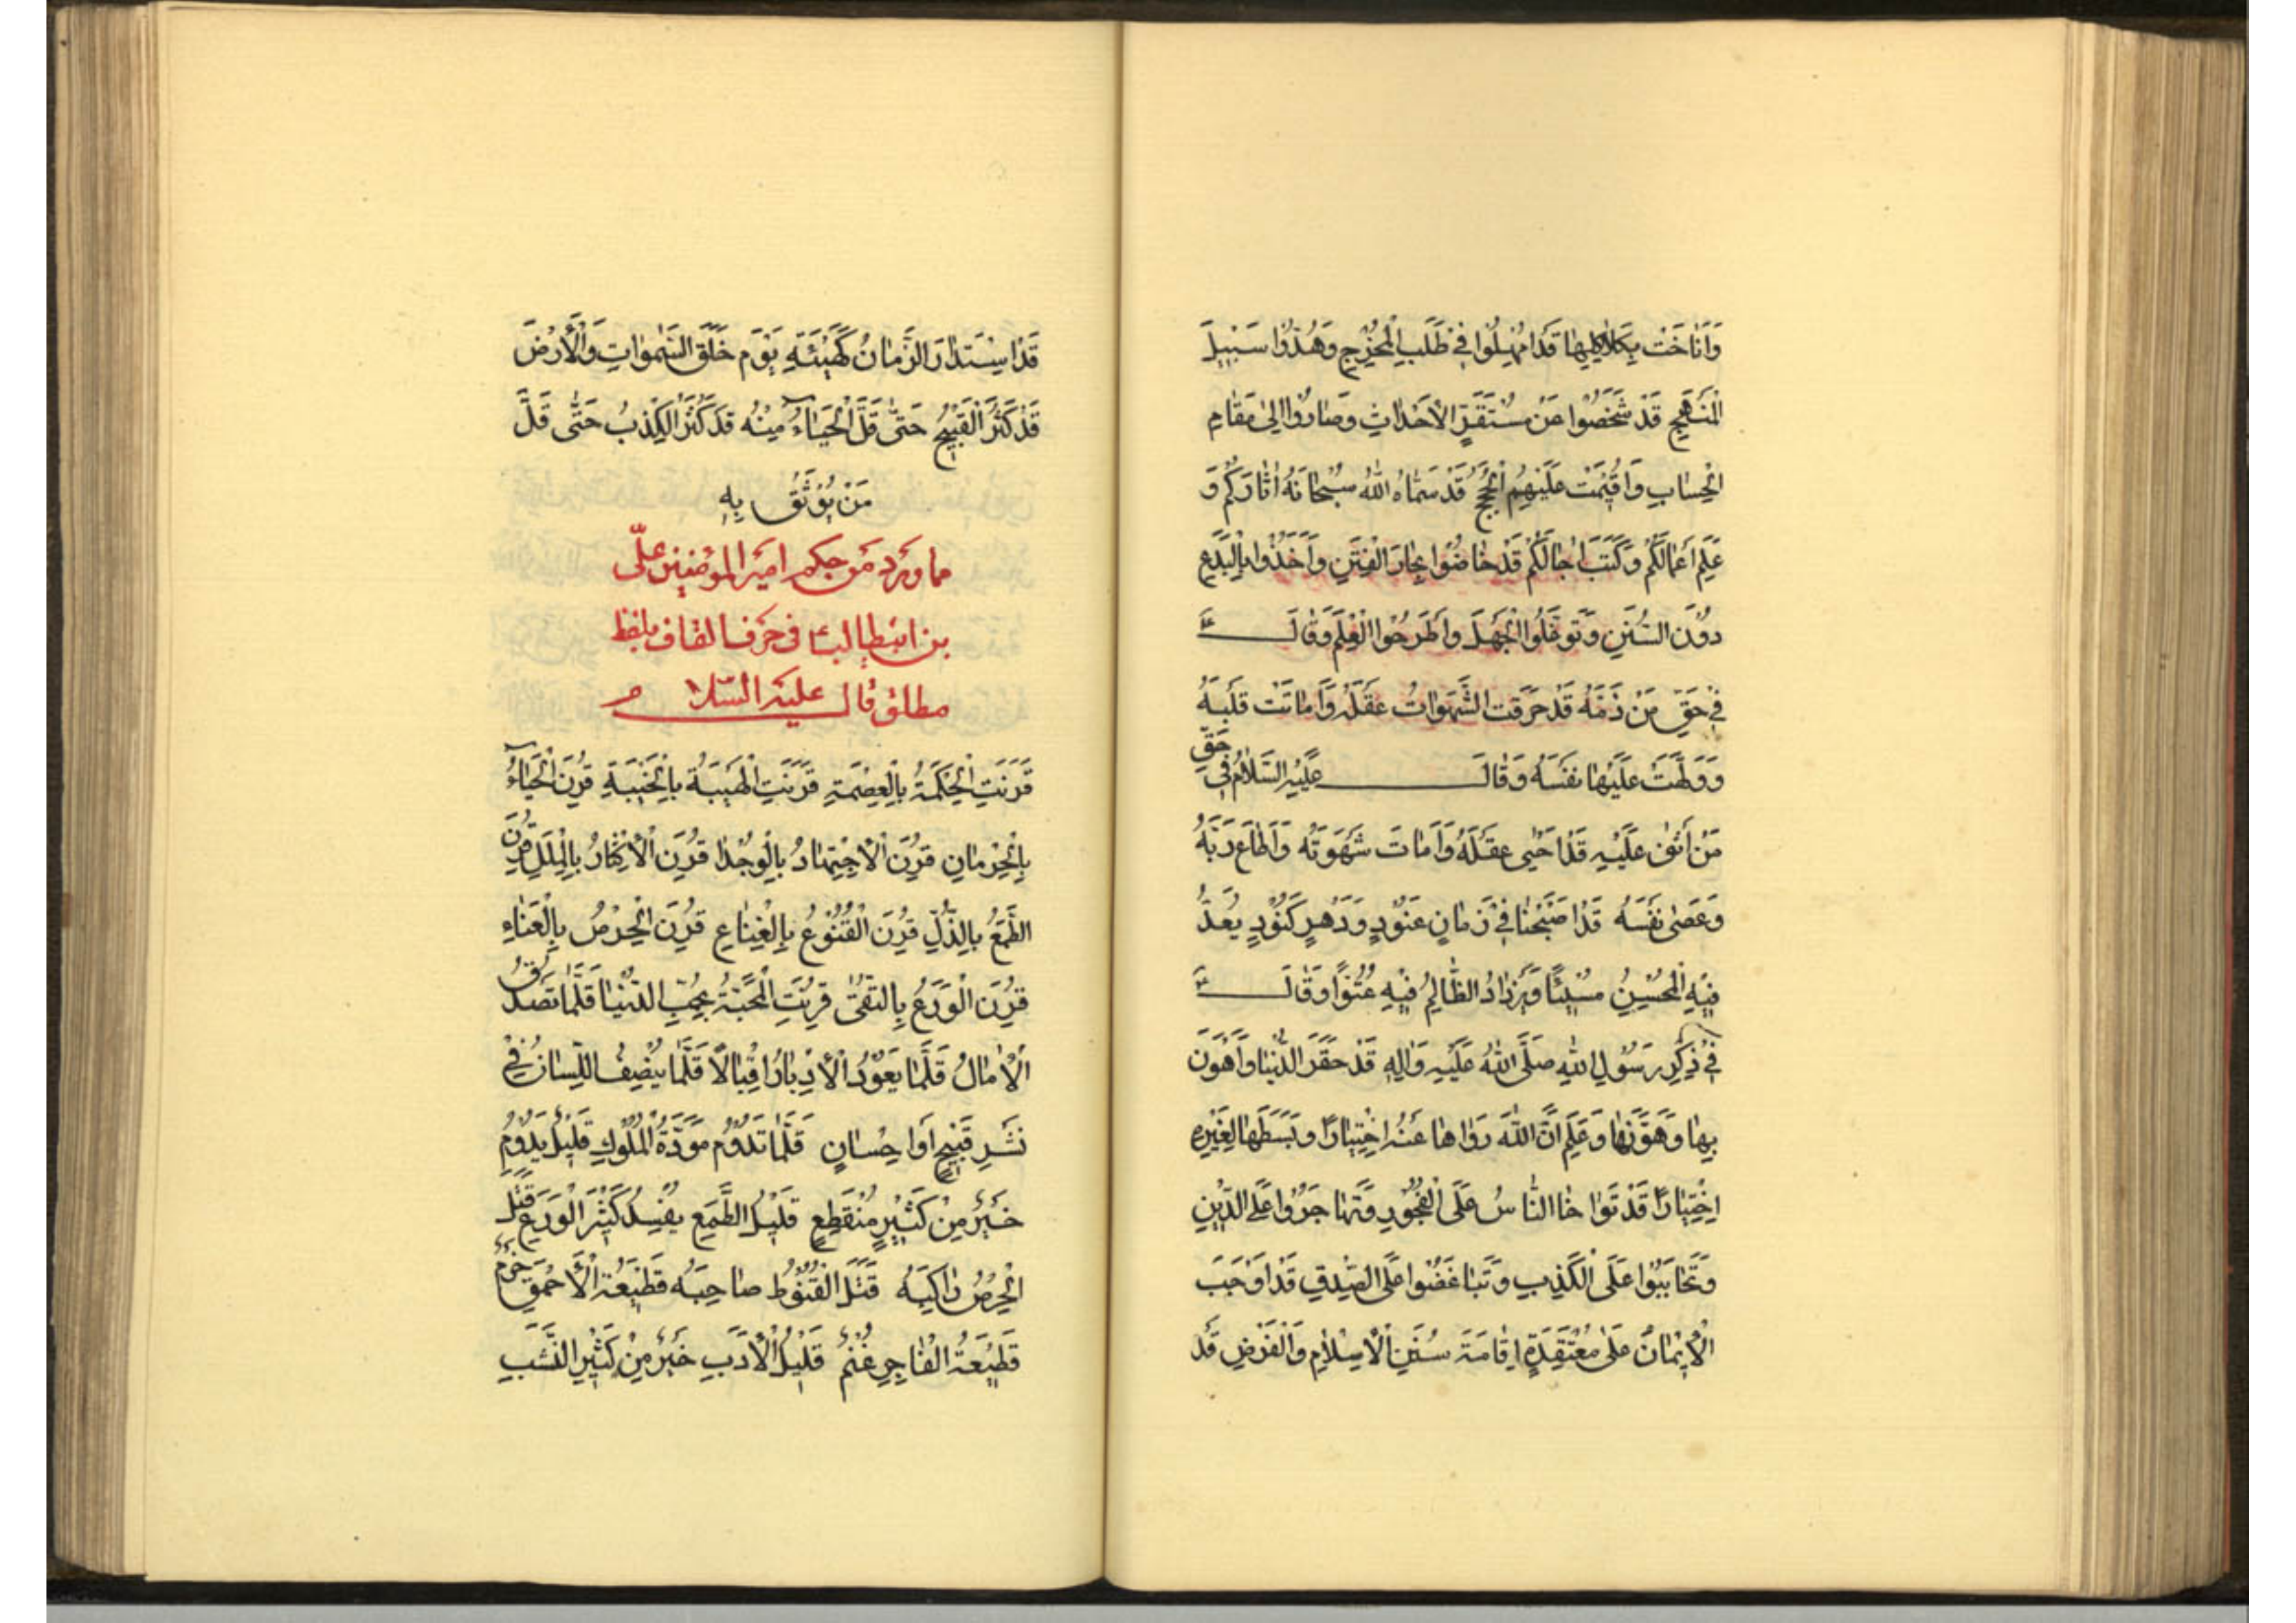 وَاَنَاخَتْ بِكَلاكِلِهِا قَدْ اُمْهِلُوا فِىْ طَلَبِ الْمَخْرَجِ وَهُدُوْا سَبِيْلَ
الْمَنْهَجِ قَدْ شَخَصُوْا مِنْ مُسْتَقَرِّ الْأَحْدَاثِ وَصَارُوْا اِلىٰ مَقَامِ
الْحِسَابِ وَاُقِيْمَتْ عَلَيْهِمُ الْحُجَجُ قَدْ سَمَّاهُ اللهُ سُبْحَانَهُ اٰثَارَكُمْ وَ
عَلِمَ اَعْمَالَكُمْ وَكَتَبَ اٰجَالَكُمْ قَدْ خَاضُوْا بِحَارَ الْفِتَنِ وَاَخَذُوْا بِالْبِدَعِ
دُوْنَ السُّنَنِ وَتَوَغَّلُوا الْجَهْلَ وَاطَّرَحُوا الْعِلْمَ وَقَالَ ع
فِىْ حَقِّ مَنْ ذَمَّهُ قَدْ خَرَقَتِ الشَّهَوَاتُ عَقْلَهُ وَاَمَاتَتْ قَلْبَهُ
وَوَلَّهَتْ عَلَيْهَا نَفْسَهُ وَقَالَ عَلَيْهِ السَّلَامُ فِىْ حَقِّ
مَنْ اَثْنىٰ عَلَيْهِ قَدْ اَحْيىٰ عَقْلَهُ وَاَمَاتَ شَهْوَتَهُ وَاَطَاعَ رَبَّهُ
وَعَصىٰ نَفْسَهُ قَدْ اَصْبَحْنَا فِىْ زَمَانٍ عَنُوْدٍ وَدَهْرٍ كَنُوْدٍ يُعَدُّ
فِيْهِ الْمُحْسِنُ مُسِيْئًا وَيَزْدَادُ الظَّالِمُ فِيْهِ عُتُوًّا وَقَالَ ع
فِىْ ذِكْرِ رَسُوْلِ اللهِ صَلَّى اللهُ عَلَيْهِ وَاٰلِهِ قَدْ حَقَّرَ الدُّنْيَا وَاَهْوَنَ
بِهَا وَهَوَّنَهَا وَعَلِمَ اَنَّ اللهَ زَوَاهَا عَنْهُ اخْتِيَارًا وَبَسَطَهَا لِغَيْرِهِ
اِخْتِبَارًا قَدْ تَوَاخَا النَّاسُ عَلَى الْفُجُوْرِ وَتَهَاجَرُوْا عَلَى الدِّيْنِ
وَتَحَابَبُوْا عَلَى الْكَذِبِ وَتَبَاغَضُوْا عَلَى الصِّدْقِ قَدْ اَوْجَبَ
الْاِيْمَانُ عَلىٰ مُعْتَقِدِهِ اِقَامَةَ سُنَنِ الْاِسْلَامِ وَالْفَرْضِ قَدْ
قَدْ اسْتَدَارَ الزَّمَانُ كَهَيْئَتِهِ يَوْمَ خَلَقَ السَّمٰوَاتِ وَالْأَرْضَ
قَدْ كَثُرَ الْقَبِيْحُ حَتّىٰ قَلَّ الْحَيَاءُ مِنْهُ قَدْ كَثُرَ الْكِذْبُ حَتّىٰ قَلَّ
مَنْ يُوْثَقُ بِهِ
مما ورد من حكم امير المؤمنين علىّ
بن ابيطالب ع فى حرف القاف بلفظ
مطلق قال عليه السّلام
قُرِنَتِ الْحِكْمَةُ بِالْعِصْمَةِ قُرِنَتِ الْهَيْبَةُ بِالْخَيْبَةِ قُرِنَ الْحَيَاءُ
بِالْحِرْمَانِ قُرِنَ الْاِجْتِهَادُ بِالْوُجْدِ قُرِنَ الْاِكْثَارُ بِالْمَلَلِ قُرِنَ
الطَّمَعُ بِالذُّلِّ قُرِنَ الْقُنُوْعُ بِالْغِنَاءِ قُرِنَ الْحِرْصُ بِالْعَنَاءِ
قُرِنَ الْوَرَعُ بِالتُّقىٰ قُرِنَتِ الْمِحْنَةُ بِحُبِّ الدُّنْيَا قَلَّمَا تَصْدُقُ
الْاٰمَالُ قَلَّمَا يَعُوْدُ الْأِدْبَارُ اِقْبَالًا قَلَّمَا يُنْصِفُ اللِّسَانُ فِىْ
نَشْرِ قَبِيْحٍ اَوْ اِحْسَانٍ قَلَّمَا تَدُوْمُ مَوَدَّةُ الْمُلُوْكِ قَلِيْلٌ يَدُوْمُ
خَيْرٌ مِنْ كَثِيْرٍ مُنْقَطِعٍ قَلِيْلُ الطَّمَعِ يُفْسِدُ كَثِيْرَ الْوَرَعِ قَتَلَ
الْحِرْصُ رَاكِبَهُ قَتَلَ الْقُنُوْطُ صَاحِبَهُ قَطِيْعَةُ الْأَحْمَقِ حَزْمٌ
قَطِيْعَةُ الْفَاجِرِ غُنْمٌ قَلِيْلُ الْأَدَبِ خَيْرٌ مِنْ كَثِيْرِ النَّسَبِ